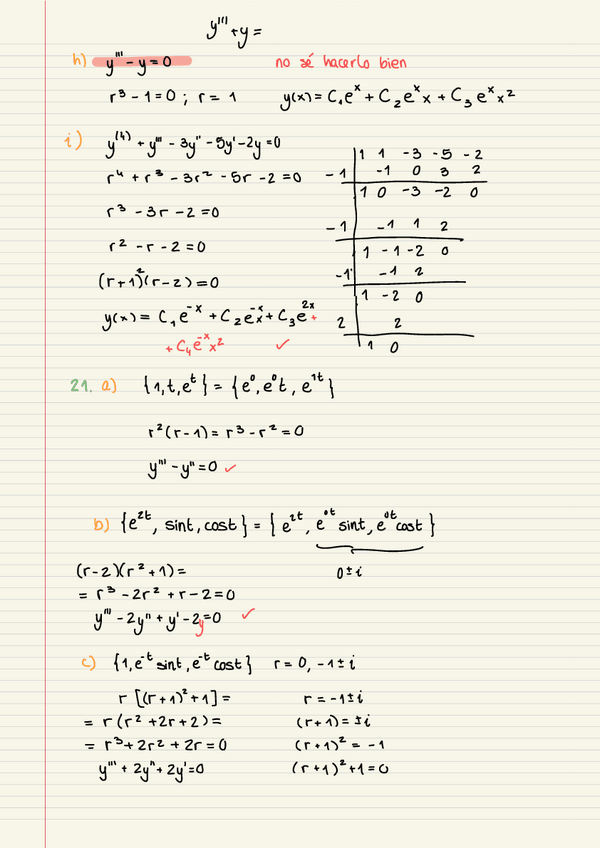 y''' + y =
h) y''' - y = 0 no sé hacerlo bien
r³ - 1 = 0 ; r = 1 y(x) = C₁eˣ + C₂eˣx + C₃eˣx²
i) y⁽⁴⁾ + y''' - 3y'' - 5y' - 2y = 0
r⁴ + r³ - 3r² - 5r - 2 = 0
r³ - 3r - 2 = 0
r² - r - 2 = 0
(r+1)²(r-2) = 0
y(x) = C₁e⁻ˣ + C₂e⁻ˣx + C₃e²ˣ +
+ C₄e⁻ˣx² ✓
1 1 -3 -5 -2
-1 -1 0 3 2
1 0 -3 -2 0
-1 -1 1 2
1 -1 -2 0
-1 -1 2
1 -2 0
2 2
1 0
21. a) {1, t, eᵗ} = {e⁰, e⁰t, e¹ᵗ}
r²(r-1) = r³ - r² = 0
y''' - y'' = 0 ✓
b) {e²ᵗ, sint, cost} = {e²ᵗ, e⁰ᵗ sint, e⁰ᵗ cost}
(r-2)(r²+1) = 0 ± i
= r³ - 2r² + r - 2 = 0
y''' - 2y'' + y' - 2y = 0 ✓
c) {1, e⁻ᵗ sint, e⁻ᵗ cost} r = 0, -1 ± i
r [(r+1)² + 1] = r = -1 ± i
= r (r² + 2r + 2) = (r+1) = ± i
= r³ + 2r² + 2r = 0 (r+1)² = -1
y''' + 2y'' + 2y' = 0 (r+1)² + 1 = 0